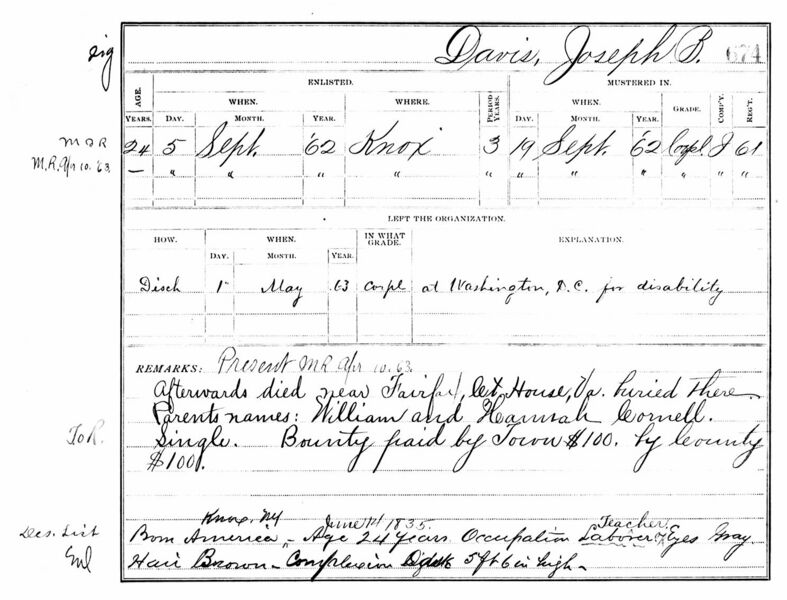 sig
Davis, Joseph B. 674
AGE. ENLISTED. MUSTERED IN.
YEARS. WHEN. WHERE. PERIOD YEARS. WHEN. GRADE. COMP'Y. REG'T.
DAY. MONTH. YEAR. DAY. MONTH. YEAR.
24 5 Sept. '62 Knox 3 19 Sept. '62 Corpl J 61
M.R. Apr 10. '63. — " " " " " " " " " "
LEFT THE ORGANIZATION.
HOW. WHEN. IN WHAT GRADE. EXPLANATION.
DAY. MONTH. YEAR.
Disch 1" May 63 corpl at Washington, D.C. for disability
REMARKS: Present M R Apr 10. 63.
Afterwards died near Fairfax Ct House, Va. buried there.
Parents names: William and Hannah Cornell.
ToR. Single. Bounty paid by Town $100. by County
$100.
Knox, NY June 14 1835. Teacher
Des. List Born America, Age 24 years. Occupation Laborer Eyes Gray
Hair Brown - Complexion 5 ft 6 in high -